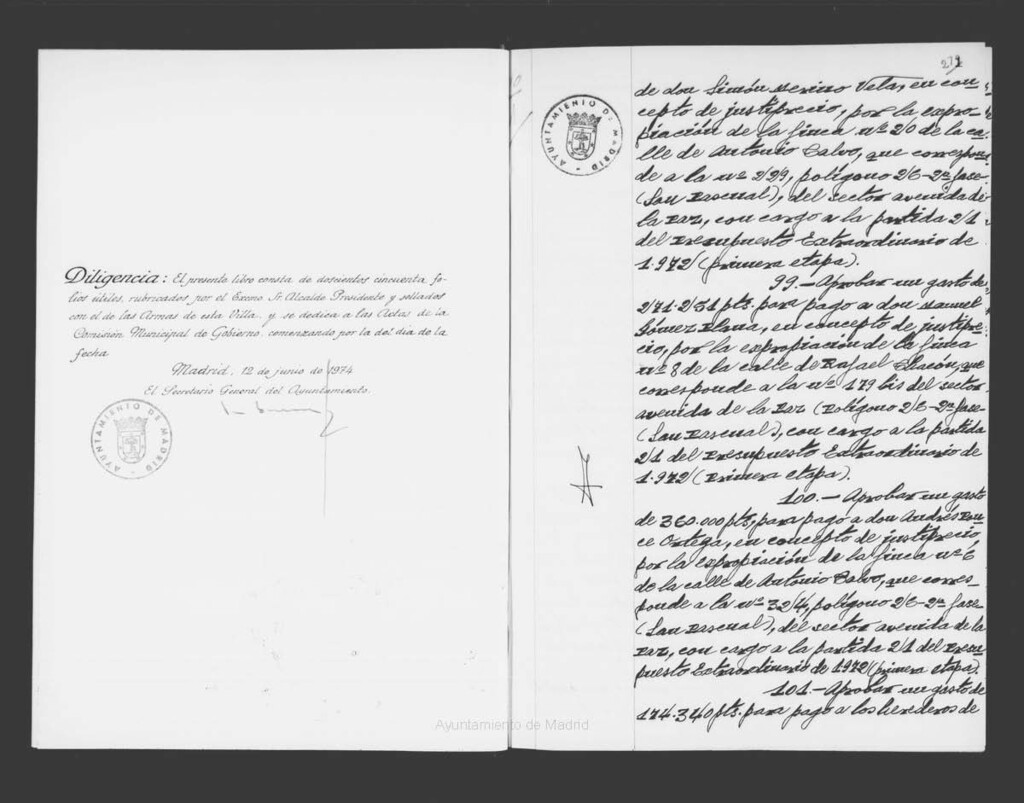 Diligencia: El presente libro consta de doscientos cincuenta fo-
lios útiles, rubricados por el Excmo. Sr. Alcalde Presidente y sellados
con el de las Armas de esta Villa, y se dedica a las Actas de la
Comisión Municipal de Gobierno, comenzando por la del día de la
fecha
Madrid, 12 de junio de 1974
El Secretario General del Ayuntamiento.
AYUNTAMIENTO DE MADRID
AYUNTAMIENTO DE MADRID
de don Simón Merino Vela, en con-
cepto de justiprecio, por la expro-
piación de la finca nº 20 de la ca-
lle de Antonio Calvo, que correspon-
de a la nº 229, polígono 2/C-2ª fase
(San Pascual), del sector avenida de
la Paz, con cargo a la partida 2/1
del Presupuesto Extraordinario de
1.972 (primera etapa).
99.- Aprobar un gasto de
271.231 pts. para pago a don Manuel
Gómez Plana, en concepto de justipre-
cio, por la expropiación de la finca
nº 8 de la calle de Rafael, que
corresponde a la nº 179 bis del sector
avenida de la Paz (Polígono 2/C-2ª fase
(San Pascual), con cargo a la partida
2/1 del Presupuesto Extraordinario de
1.972 (Primera etapa).
100.- Aprobar un gasto
de 360.000 pts, para pago a don Andrés Pon-
ce Ortega, en concepto de justiprecio,
por la expropiación de la finca nº 6
de la calle de Antonio Calvo, que corres-
ponde a la nº 324, polígono 2/C-2ª fase
(San Pascual), del sector avenida de la
Paz, con cargo a la partida 2/1 del Presu-
puesto Extraordinario de 1972 (primera etapa).
101.- Aprobar un gasto de
174.340 pts. para pago a los herederos de
Ayuntamiento de Madrid